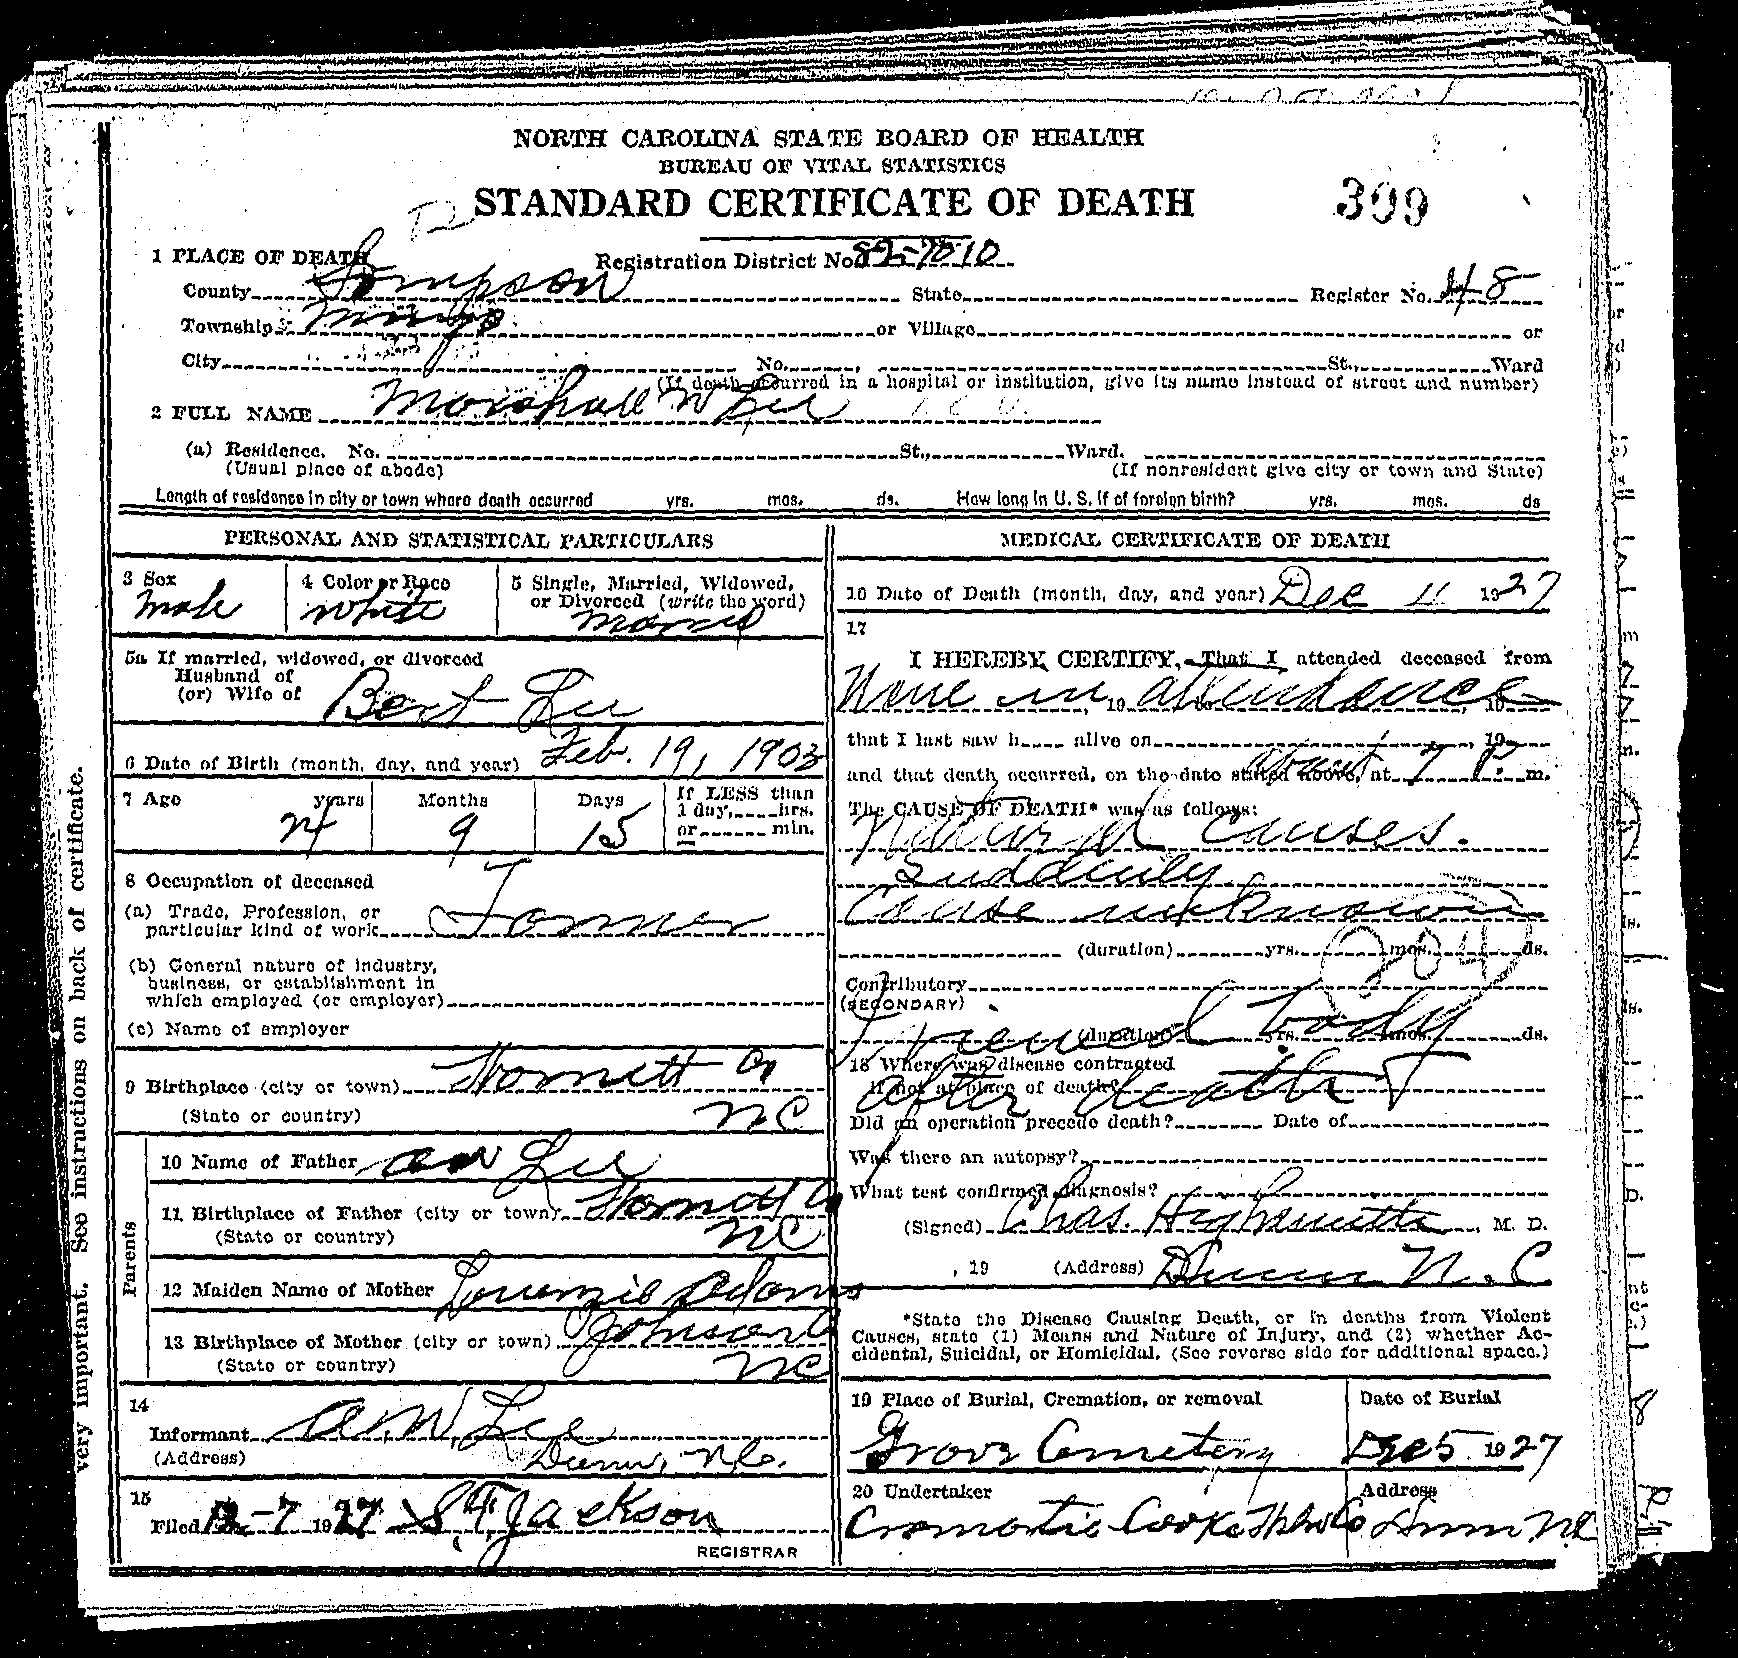 NORTH CAROLINA STATE BOARD OF HEALTH
BUREAU OF VITAL STATISTICS
STANDARD CERTIFICATE OF DEATH
399
1 PLACE OF DEATH
Registration District No. 82-7010
County Sampson State Register No. 48
Township Mingo or Village or
City No. St., Ward
(If death occurred in a hospital or institution, give its name instead of street and number)
2 FULL NAME Marshall W Lee
(a) Residence. No. St., Ward.
(Usual place of abode) (If nonresident give city or town and State)
Length of residence in city or town where death occurred yrs. mos. ds. How long in U. S. if of foreign birth? yrs. mos. ds
PERSONAL AND STATISTICAL PARTICULARS
3 Sex 4 Color or Race 5 Single, Married, Widowed,
or Divorced (write the word)
Male White Married
5a If married, widowed, or divorced
Husband of
(or) Wife of Bert Lee
6 Date of Birth (month, day, and year) Feb. 19, 1903
7 Age years Months Days If LESS than
1 day, hrs.
or min.
24 9 15
8 Occupation of deceased
(a) Trade, Profession, or
particular kind of work Farmer
(b) General nature of industry,
business, or establishment in
which employed (or employer)
(c) Name of employer
9 Birthplace (city or town) Harnett Co
(State or country) NC
Parents
10 Name of Father AW Lee
11 Birthplace of Father (city or town) Harnett Co
(State or country) NC
12 Maiden Name of Mother Adams
13 Birthplace of Mother (city or town) Johnson Co
(State or country) NC
14
Informant A.W. Lee
(Address) Dunn, N.C.
15
Filed 12-7 1927 S.T. Jackson
REGISTRAR
MEDICAL CERTIFICATE OF DEATH
16 Date of Death (month, day, and year) Dec 4 1927
17
I HEREBY CERTIFY, That I attended deceased from
None in, 19 attendance, 19
that I last saw h alive on , 19
and that death occurred, on the date stated above, at about 7 P. m.
The CAUSE OF DEATH* was as follows:
Natural causes.
Suddenly
Cause unknown
(duration) yrs. mos. ds.
204
Contributory
(SECONDARY)
(duration) yrs. mos. ds.
I viewed body
18 Where was disease contracted
if not at place of death?
after death
Did an operation precede death? Date of
Was there an autopsy?
What test confirmed diagnosis?
(Signed) Chas. Highsmith, M. D.
, 19 (Address) Dunn N.C.
*State the Disease Causing Death, or in deaths from Violent
Causes, state (1) Means and Nature of Injury, and (2) whether Ac-
cidental, Suicidal, or Homicidal. (See reverse side for additional space.)
19 Place of Burial, Cremation, or removal Date of Burial
Grove Cemetery Dec 5 1927
20 Undertaker Address
Cromartie Cooke Hdw Co Dunn NC
very important. See instructions on back of certificate.